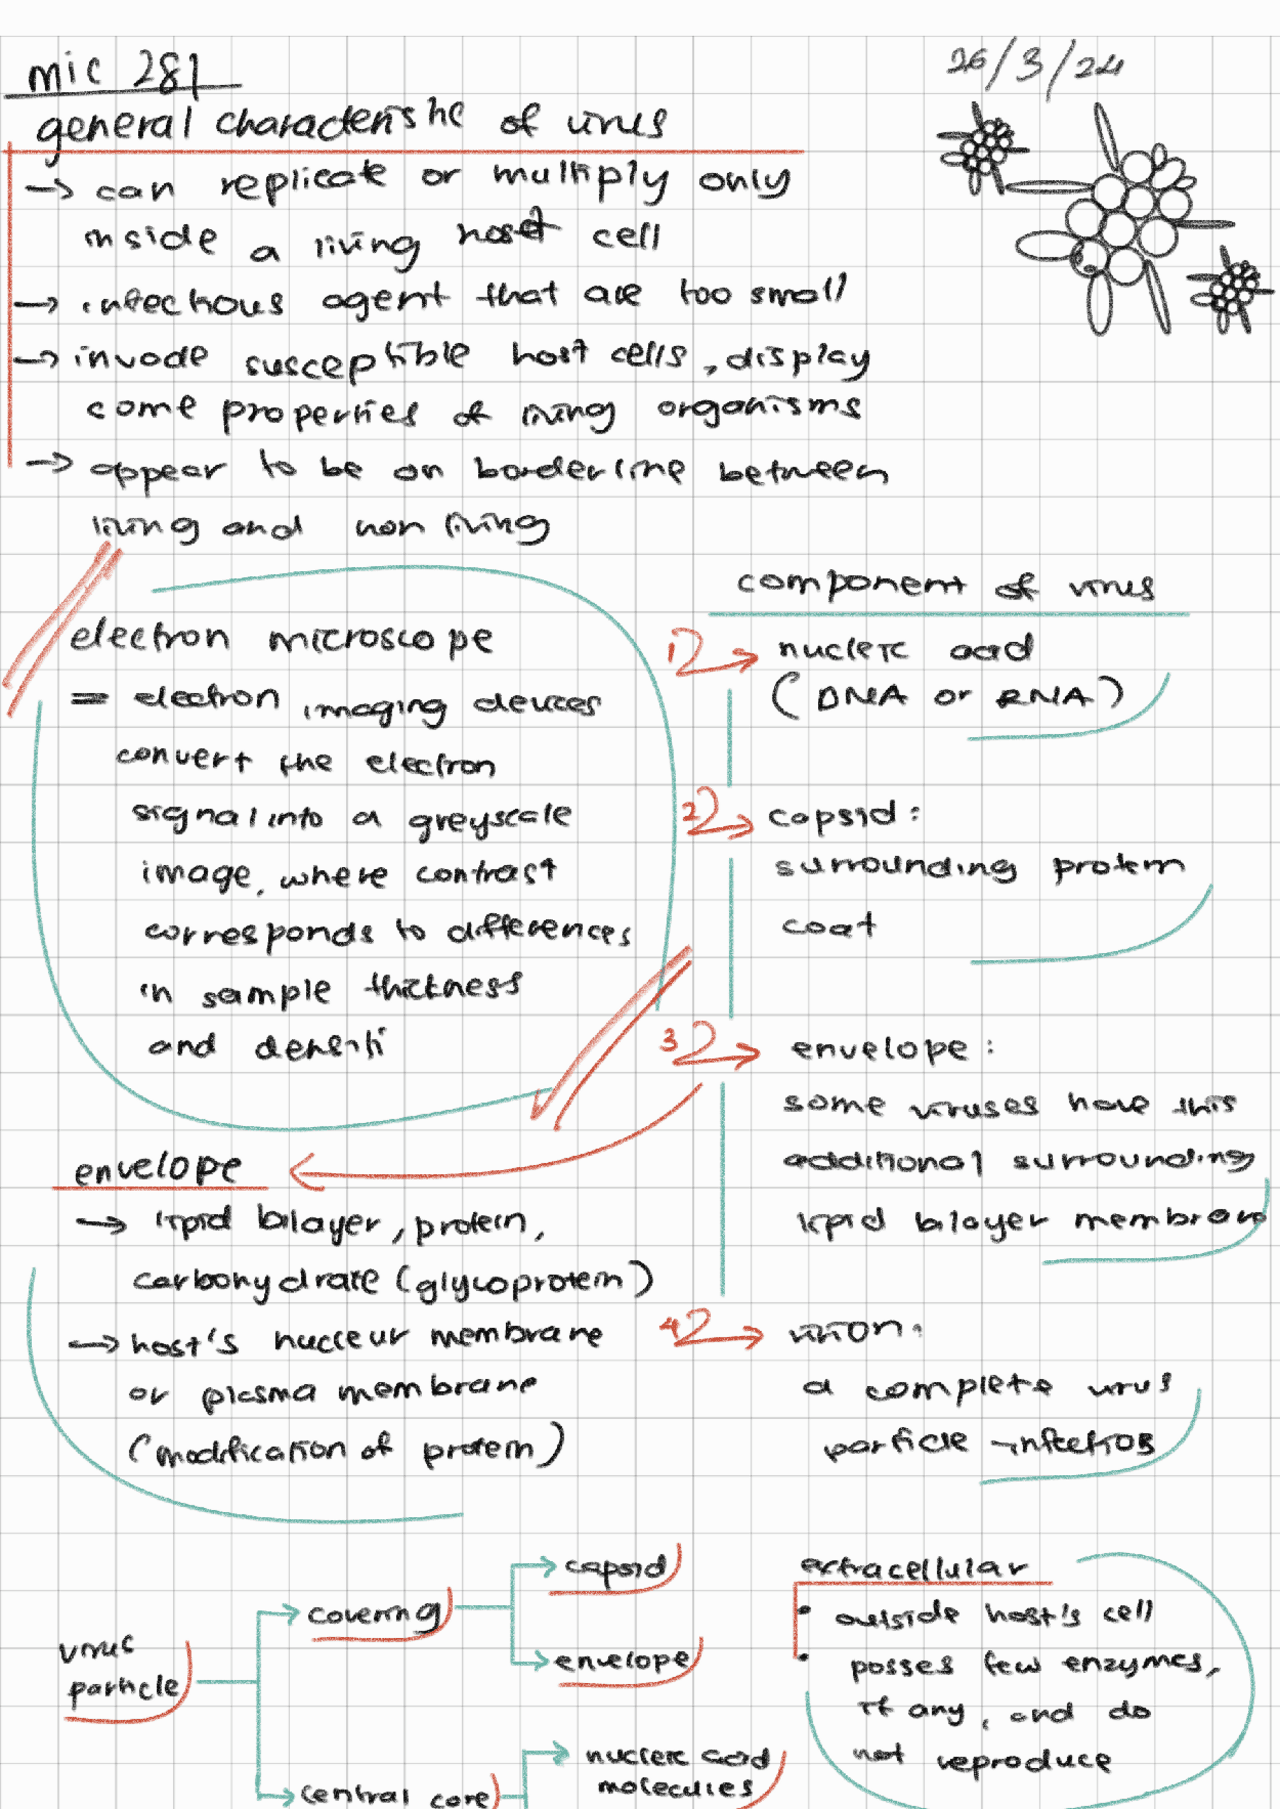 mic 281
26/3/24
general characteristic of virus
→ can replicate or multiply only
inside a living host cell
→ infectious agent that are too small
→ invade susceptible host cells, display
come properties of living organisms
→ appear to be on borderline between
living and non living
electron microscope
= electron imaging devices
convert the electron
signal into a greyscale
image, where contrast
corresponds to differences
in sample thickness
and densiti
component of virus
1) → nucleic acid
(DNA or RNA)
2) → capsid:
surrounding protein
coat
3) → envelope:
some viruses have this
additional surrounding
lipid bilayer membrane
4) → virion:
a complete virus
particle -
envelope
→ lipid bilayer, protein,
carbohydrate (glycoprotein)
→ host's membrane
or plasma membrane
(modification of protein)
virus
particle
covering
capsid
envelope
central core
nucleic acid
molecules
extracellular
• outside host's cell
• posses few enzymes,
if any, and do
not reproduce